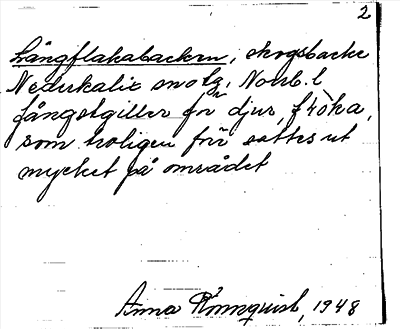 2
Långflakabacken, skogsbacke
Nederkalix sn Norrb. l
fångstgiller för djur, flöka,
som troligen förr sattes ut
mycket på området
Anna Rönnquist, 1948